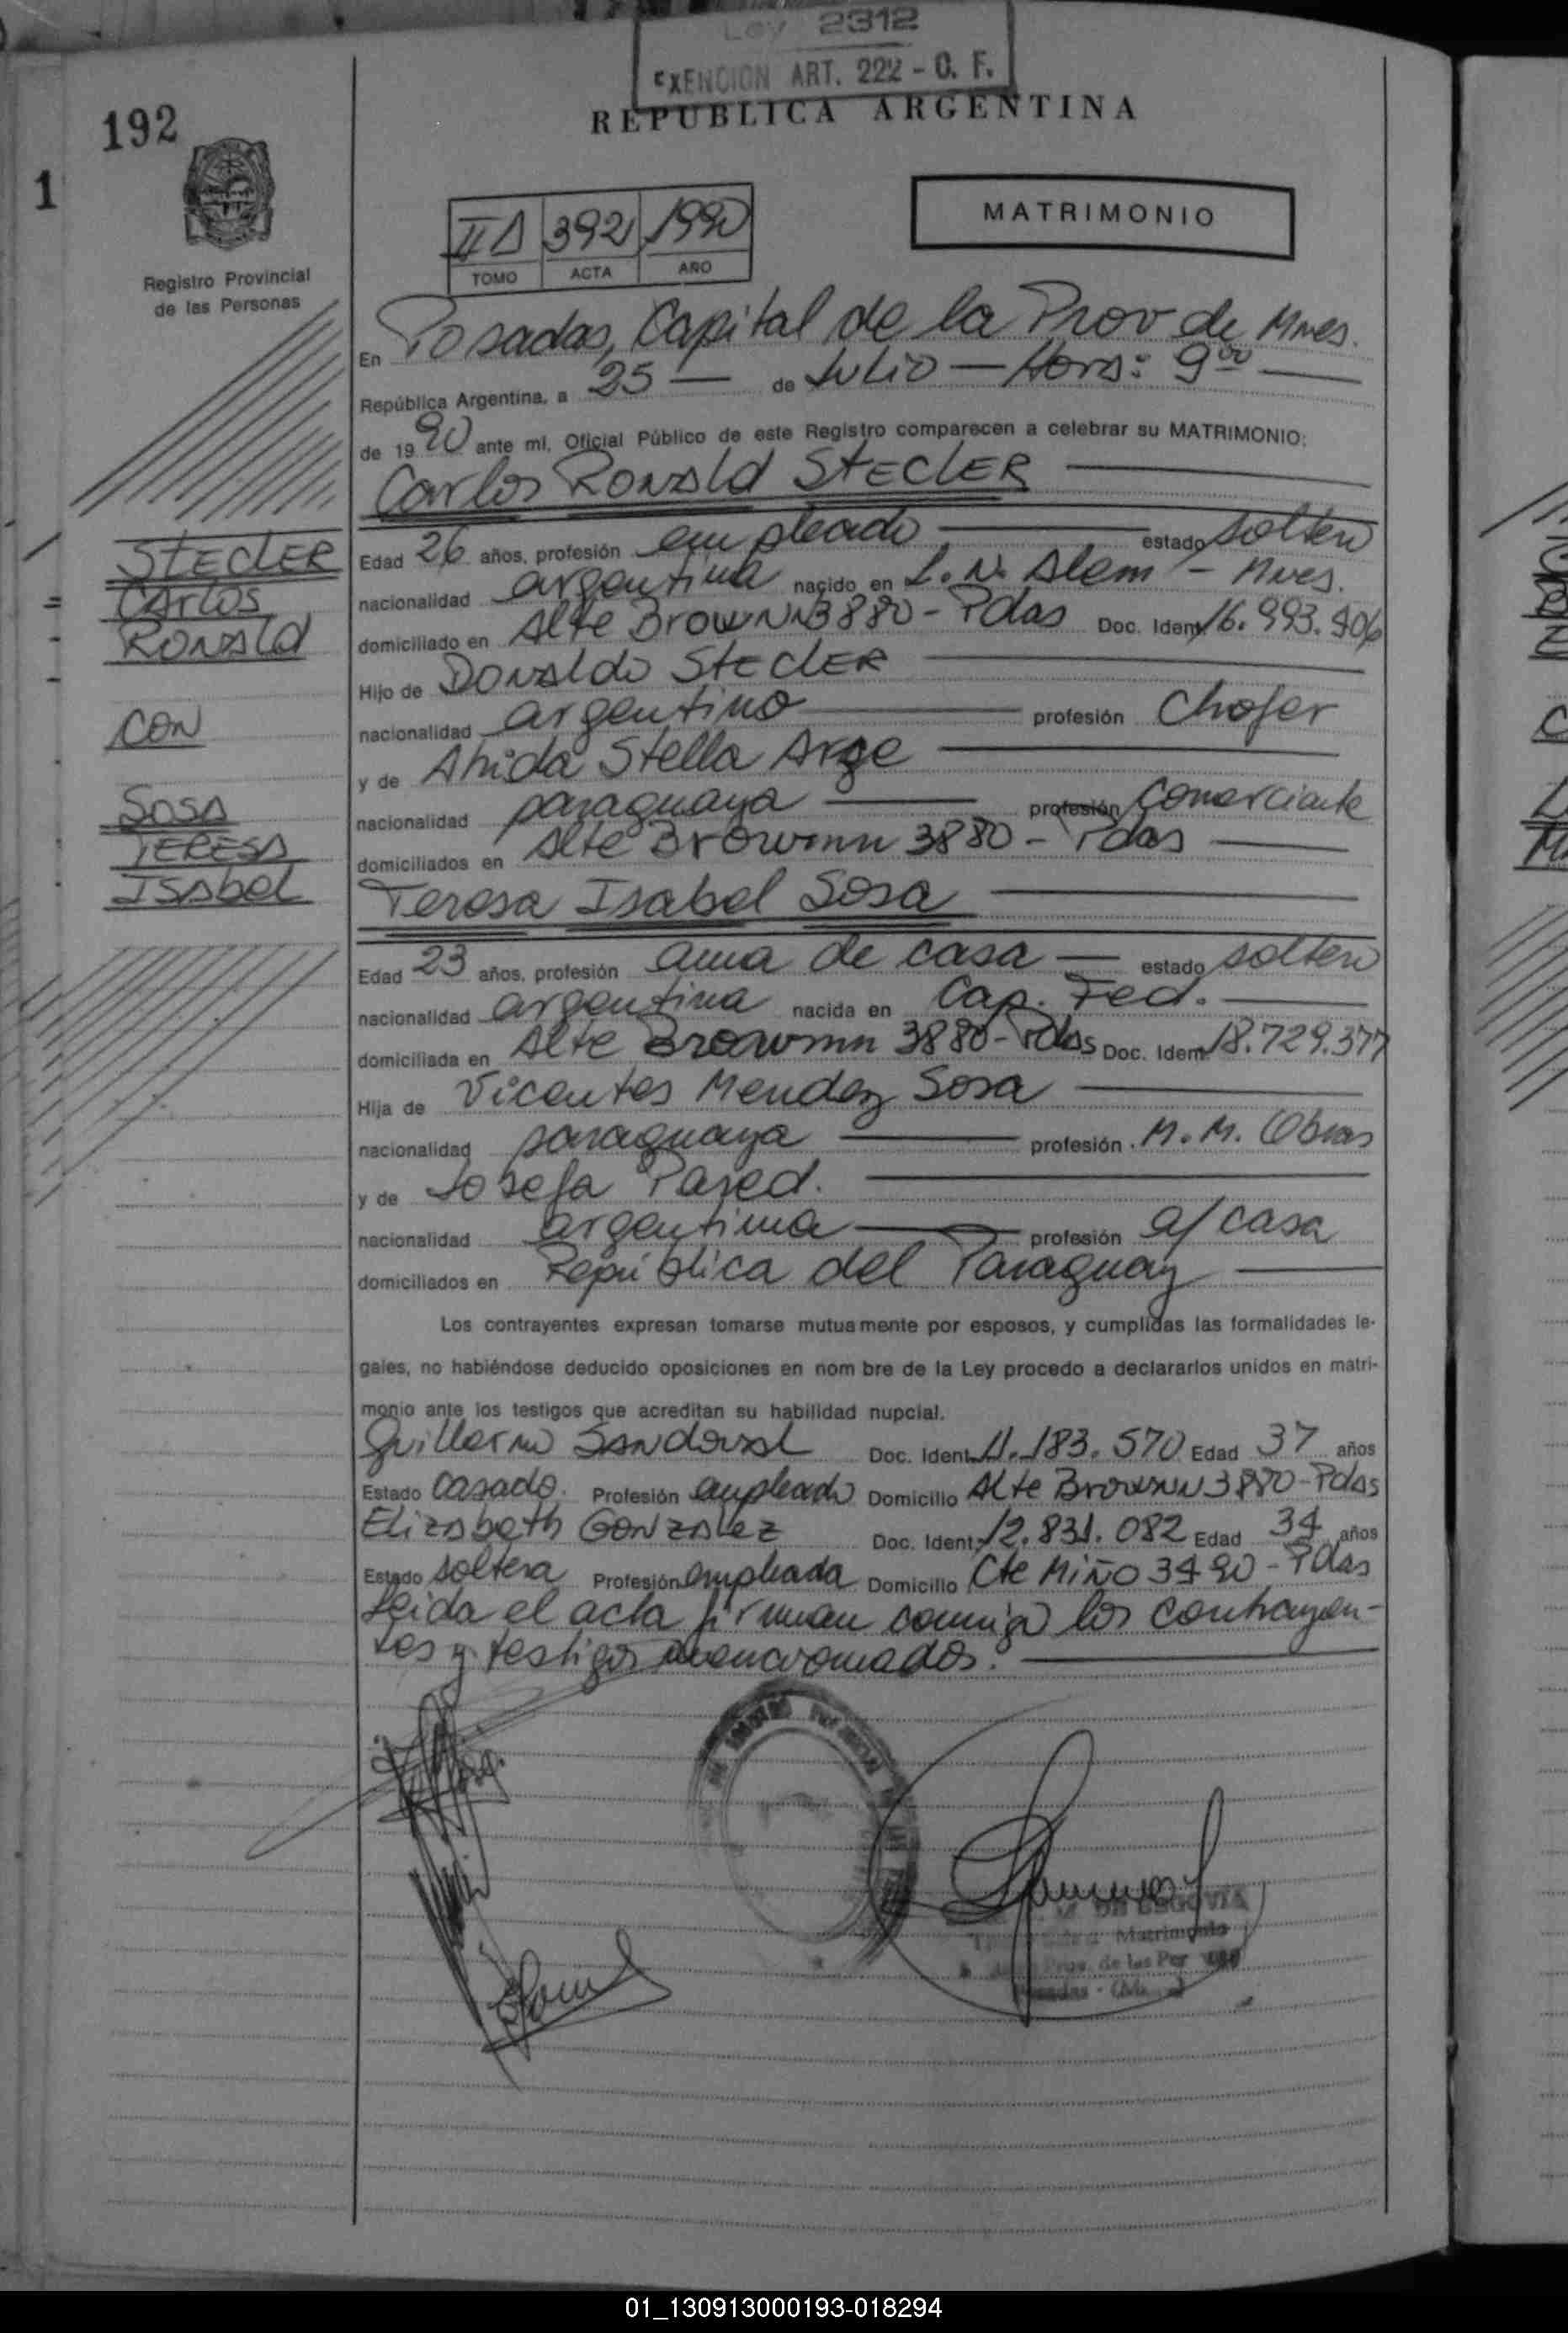 Ley 2312
EXENCION ART. 222 - O. F.
REPUBLICA ARGENTINA
192
1
Registro Provincial
de las Personas
MATRIMONIO
II 392 1990
TOMO ACTA AÑO
En Posadas, Capital de la Prov de Mnes.
República Argentina, a 25 — de Julio — Hora: 9 00
de 1990 ante mi, Oficial Público de este Registro comparecen a celebrar su MATRIMONIO:
Carlos Ronald STECLER
STECLER
CArlos
Ronald
CON
SOSA
TERESA
ISAbel
Edad 26 años, profesión empleado estado soltero
nacionalidad argentina nacido en L. N. Alem - Mnes.
domiciliado en Alte Brown 3880 - Pdas Doc. Ident. 16.993.406
Hijo de Donaldo STEclER
nacionalidad argentino profesión Chofer
y de Ahida Stella Arge
nacionalidad paraguaya profesión Comerciante
domiciliados en Alte Browmn 3880 - Pdas
Teresa Isabel Sosa
Edad 23 años, profesión ama de casa estado soltera
nacionalidad argentina nacida en Cap. Fed.
domiciliada en Alte Browmn 3880 - Pdas Doc. Ident. 18.729.377
Hija de Vicentes Mendez Sosa
nacionalidad paraguaya profesión M. M. Obras
y de Josefa Pared.
nacionalidad argentina profesión a/ casa
domiciliados en República del Paraguay
Los contrayentes expresan tomarse mutuamente por esposos, y cumplidas las formalidades le-
gales, no habiéndose deducido oposiciones en nom bre de la Ley procedo a declararlos unidos en matri-
monio ante los testigos que acreditan su habilidad nupcial.
Guillermo Sandoval Doc. Ident. 11.183.570 Edad 37 años
Estado casado. Profesión empleado Domicilio Alte Brown 3880 - Pdas
Elizabeth Gonzalez Doc. Ident. 12.831.082 Edad 34 años
Estado soltera Profesión empleada Domicilio Cte Miño 3490 - Pdas
Leida el acta firman conmigo los contrayen-
tes y testigos mencionados.
DE SEGOVIA
Matrimonio
Prov. de las Per
Posadas
01_130913000193-018294